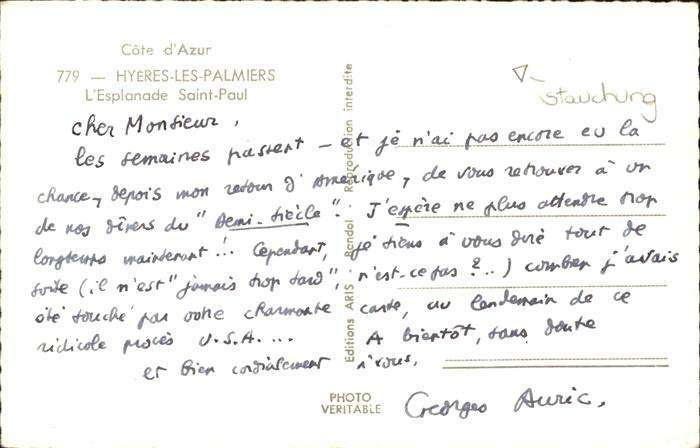 Côte d'Azur
779 — HYÈRES-LES-PALMIERS
L'Esplanade Saint-Paul
Stauchung
Cher Monsieur,
les semaines passent – et je n'ai pas encore eu la
chance, depuis mon retour d'Amérique, de vous retrouver à un
de nos dîners du "Demi-Siècle". J'espère ne plus attendre trop
longtemps maintenant!.. Cependant, je tiens à vous dire tout de
suite (il n'est "jamais trop tard", n'est-ce pas?..) combien j'avais
été touché par votre charmante carte, au lendemain de ce
ridicule procès U.S.A....
A bientôt, sans doute
et bien cordialement à vous,
Georges Auric.
Editions ARIS Bandol Reproduction interdite
PHOTO
VERITABLE